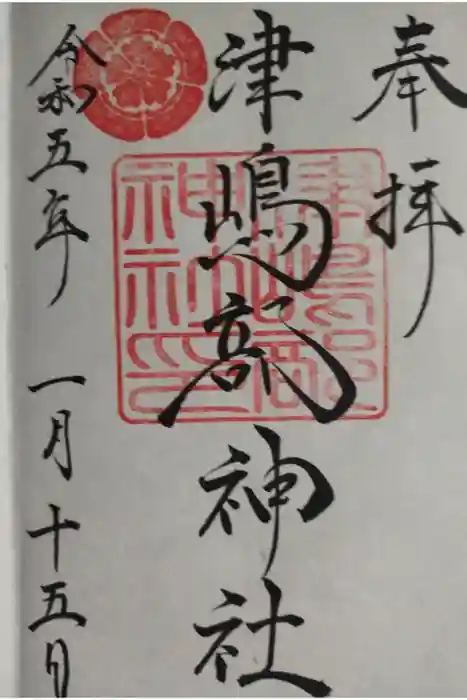 奉拝
津嶋部神社
令和五年一月十五日
津嶋部神社印